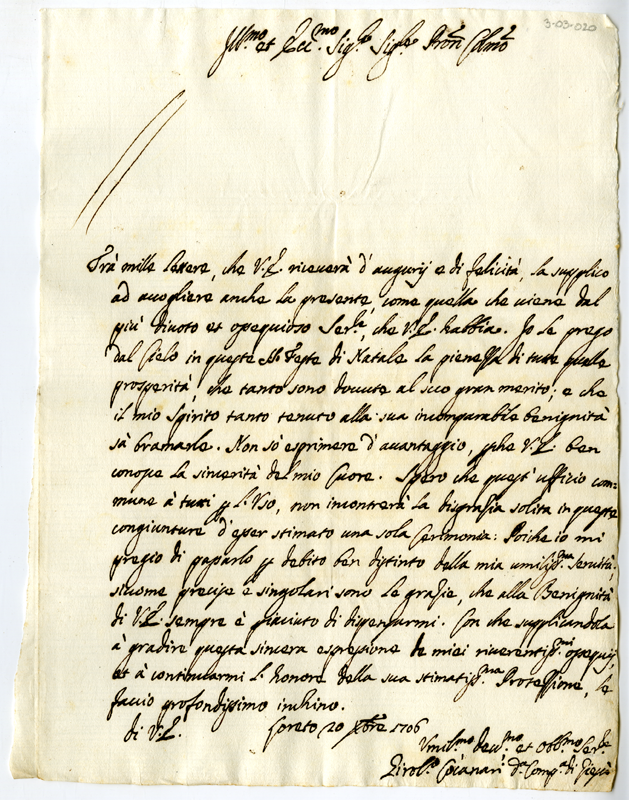 3-03-020
Ill.mo et Ecc.mo Sig.re Sig.re Pron Colmo
Trà mille lettere, che V.E. riceverà d'augurij e di felicità, la supplico
ad accogliere anche la presente, come quella che viene dal
più divoto et ossequioso Ser.re, che V.E. habbia. Io le prego
dal Cielo in queste SS. Feste di Natale la pienezza di tutte quelle
prosperità, che tanto sono dovute al suo gran merito; e che
il mio Spirito tanto tenuto alla sua incomparabile benignità
sà bramarle. Non sò esprimere d'avantaggio, perche V.E. ben
conosce la sincerità del mio Cuore. Spero che quest'ufficio com-
mune à tutti per l'Uso, non incontrerà la disgrazia solita in queste
congiunture d'esser stimato una sola Cerimonia: Poiche io mi
pregio di passarlo per debito ben distinto della mia umiliss.ma Servitù,
sicome precise e singolari sono le grazie, che alla Benignità
di V.E. sempre è piaciuto di dispensarmi. Con che supplicandola
à gradire questa sincera espressione de miei riverentiss.mi ossequij,
et à continuarmi l'honore della sua stimatiss.ma Protezzione, le
faccio profondissimo inchino.
di V.E. Loreto 20 Xbre 1706
Umil.mo dev.mo et Obb.mo Ser.re
d.a Comp.a di Giesù